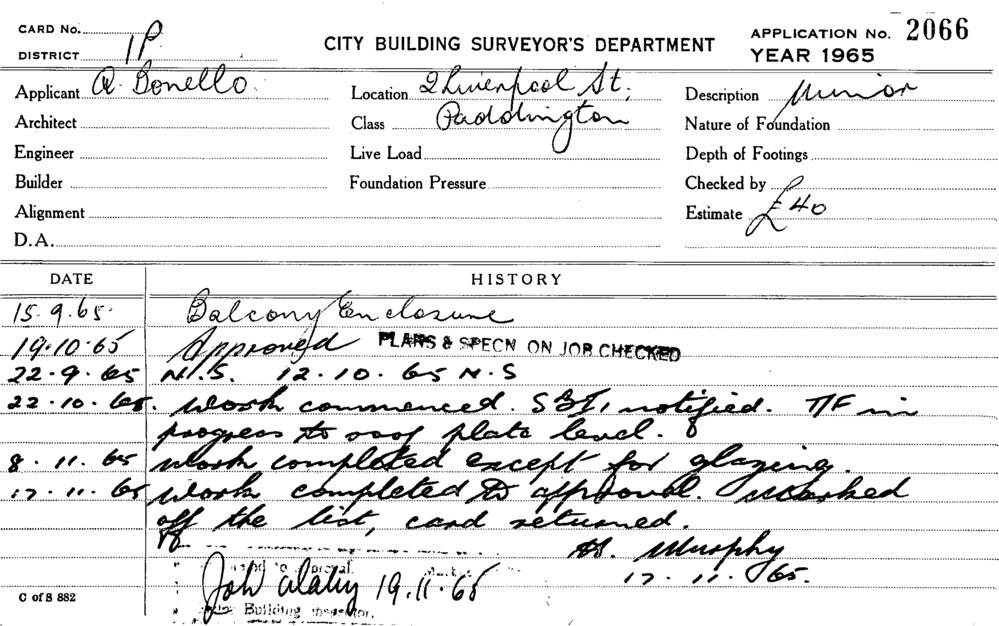 CARD No.
DISTRICT 1P
CITY BUILDING SURVEYOR'S DEPARTMENT
APPLICATION No. 2066
YEAR 1965
Applicant A. Bonello.
Location 2 Liverpool St,
Description Minior
Architect
Class Paddington
Nature of Foundation
Engineer
Live Load
Depth of Footings
Builder
Foundation Pressure
Checked by
Alignment
Estimate £40
D.A.
DATE HISTORY
15.9.65. Balcony Enclosure
19.10.65 Approved PLANS & SPECN ON JOB CHECKED
22.9.65 N.S. 12.10.65 N.S
22.10.65. Work commenced. S.B.I. notified. T/F in
progress to roof plate level.
8.11.65 Work completed except for glazing.
17.11.65 Work completed to approval. Marked
off the list, card returned.
Murphy
17.11.65.
19.11.65
Building Inspector.
C of S 882